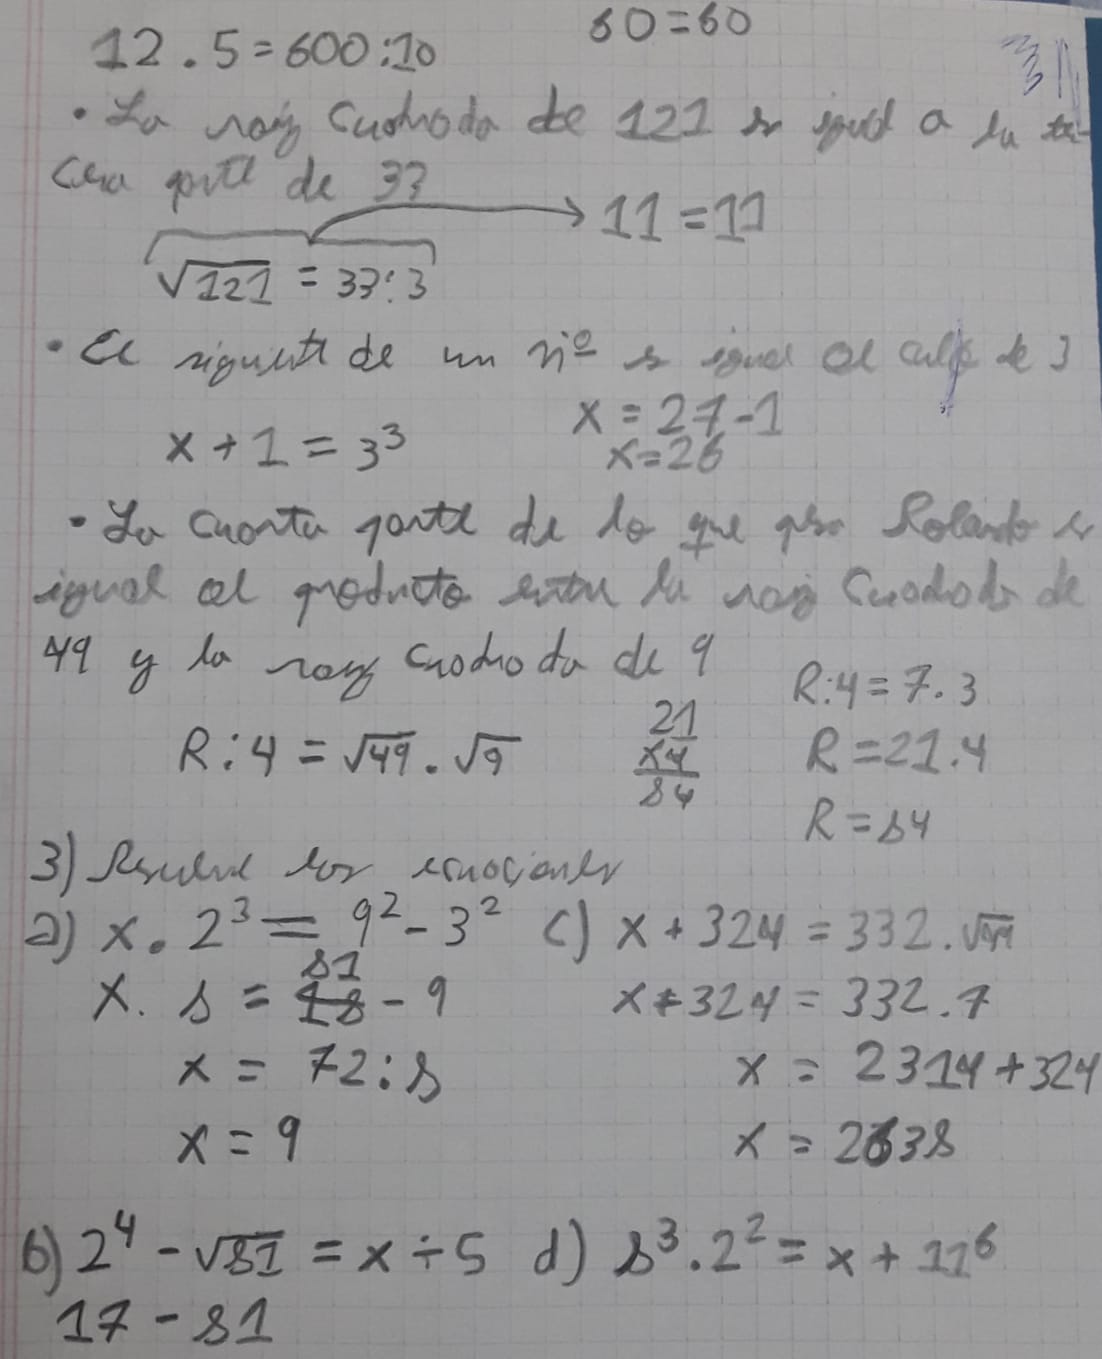 12 . 5 = 600 : 10
60 = 60
• La raiz Cuadrada de 121 es igual a la ter-
cera parte de 33
√121 = 33 : 3
11 = 11
• El siguiente de un nº es igual al cubo de 3
x + 1 = 3³
x = 27 - 1
x = 26
• La Cuarta parte de lo que pesa Rolando es
igual al producto entre la raiz Cuadrada de
49 y la raiz Cuadrada de 9
R : 4 = √49 . √9
21
x4
84
R : 4 = 7 . 3
R = 21 . 4
R = 84
3) Resuelve las ecuaciones
a) x . 2³ = 9² - 3²
x . 8 = 81 - 9
x = 72 : 8
x = 9
c) x + 324 = 332 . √49
x + 324 = 332 . 7
x = 2314 + 324
x = 2638
b) 2⁴ - √81 = x ÷ 5
17 - 81
d) 8³ . 2² = x + 11⁶